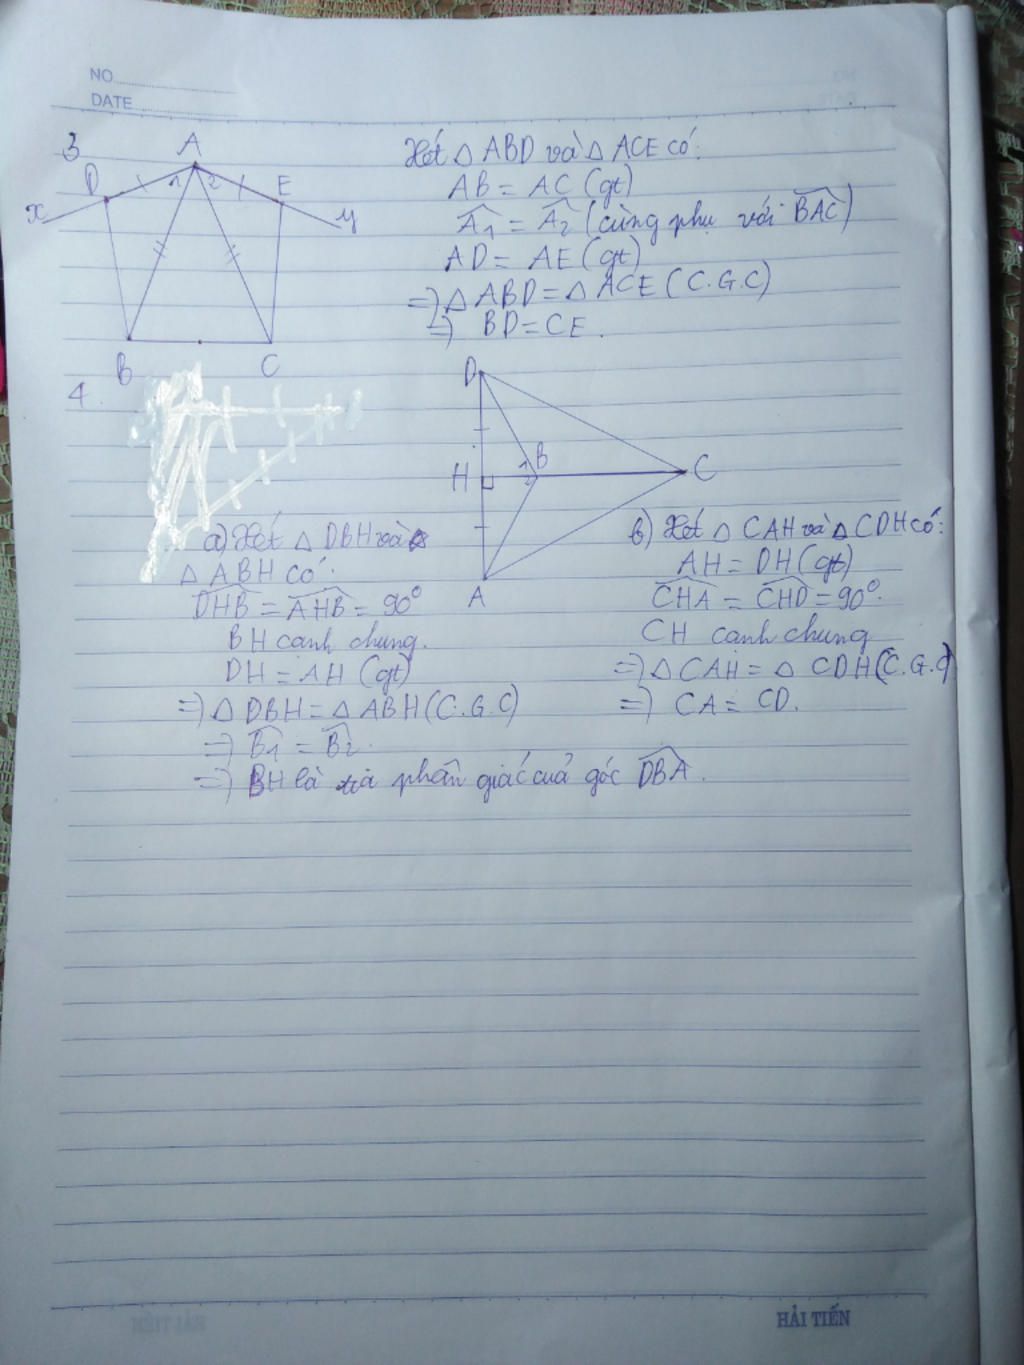 NO
DATE
3
A
D
1
2
E
x
y
B
C
Xét △ ABD và △ ACE có:
AB = AC (gt)
Â1 = Â2 (cùng phụ với BAC)
AD = AE (gt)
=> △ ABD = △ ACE (C.G.C)
=> BD = CE.
4.
D
H
1
2
B
C
A
a) Xét △ DBH và
△ ABH có:
DHB = AHB = 90°
BH cạnh chung.
DH = AH (gt)
=> △ DBH = △ ABH (C.G.C)
=> B1 = B2.
=> BH là tia phân giác của góc DBA.
b) Xét △ CAH và △ CDH có:
AH = DH (gt)
CHA = CHD = 90°.
CH cạnh chung
=> △ CAH = △ CDH (C.G.C)
=> CA = CD.
HẢI TIẾN